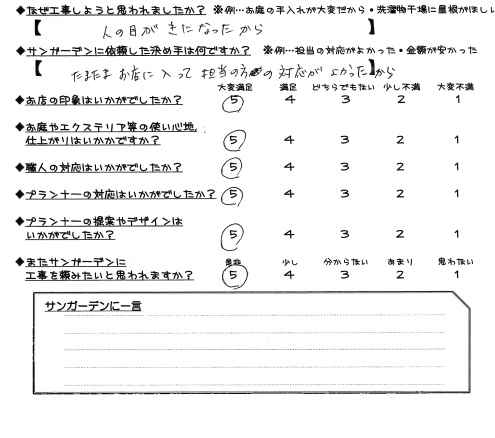 ◆なぜ工事しようと思われましたか？ ※例…お庭の手入れが大変だから・洗濯物干場に屋根がほしい
【 人の目がきになったから 】
◆サンガーデンに依頼した決め手は何ですか？ ※例…担当の対応がよかった・金額が安かった
【 たまたまお店に入って担当の方の対応がよかったから 】
大変満足 満足 どちらでもない 少し不満 大変不満
◆お店の印象はいかがでしたか？ 5 4 3 2 1
◆お庭やエクステリア等の使い心地,
仕上がりはいかかですか？ 5 4 3 2 1
◆職人の対応はいかがでしたか？ 5 4 3 2 1
◆プランナーの対応はいかがでしたか？ 5 4 3 2 1
◆プランナーの提案やデザインは
いかがでしたか？ 5 4 3 2 1
是非 少し 分からない あまり 思わない
◆またサンガーデンに
工事を頼みたいと思われますか？ 5 4 3 2 1
サンガーデンに一言